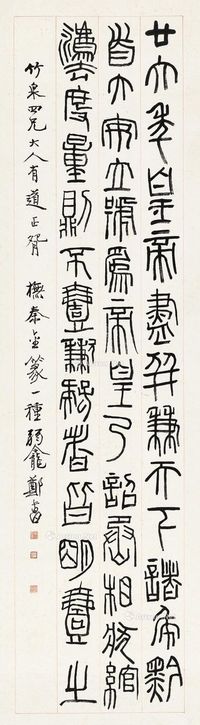 廿六年皇帝盡并兼天下諸侯黔
首大安立號爲帝皇乃詔丞相狀綰
灋度量則不壹歉疑者皆明壹之
竹泉四兄大人有道正 橅秦篆一種 弱龕鄭